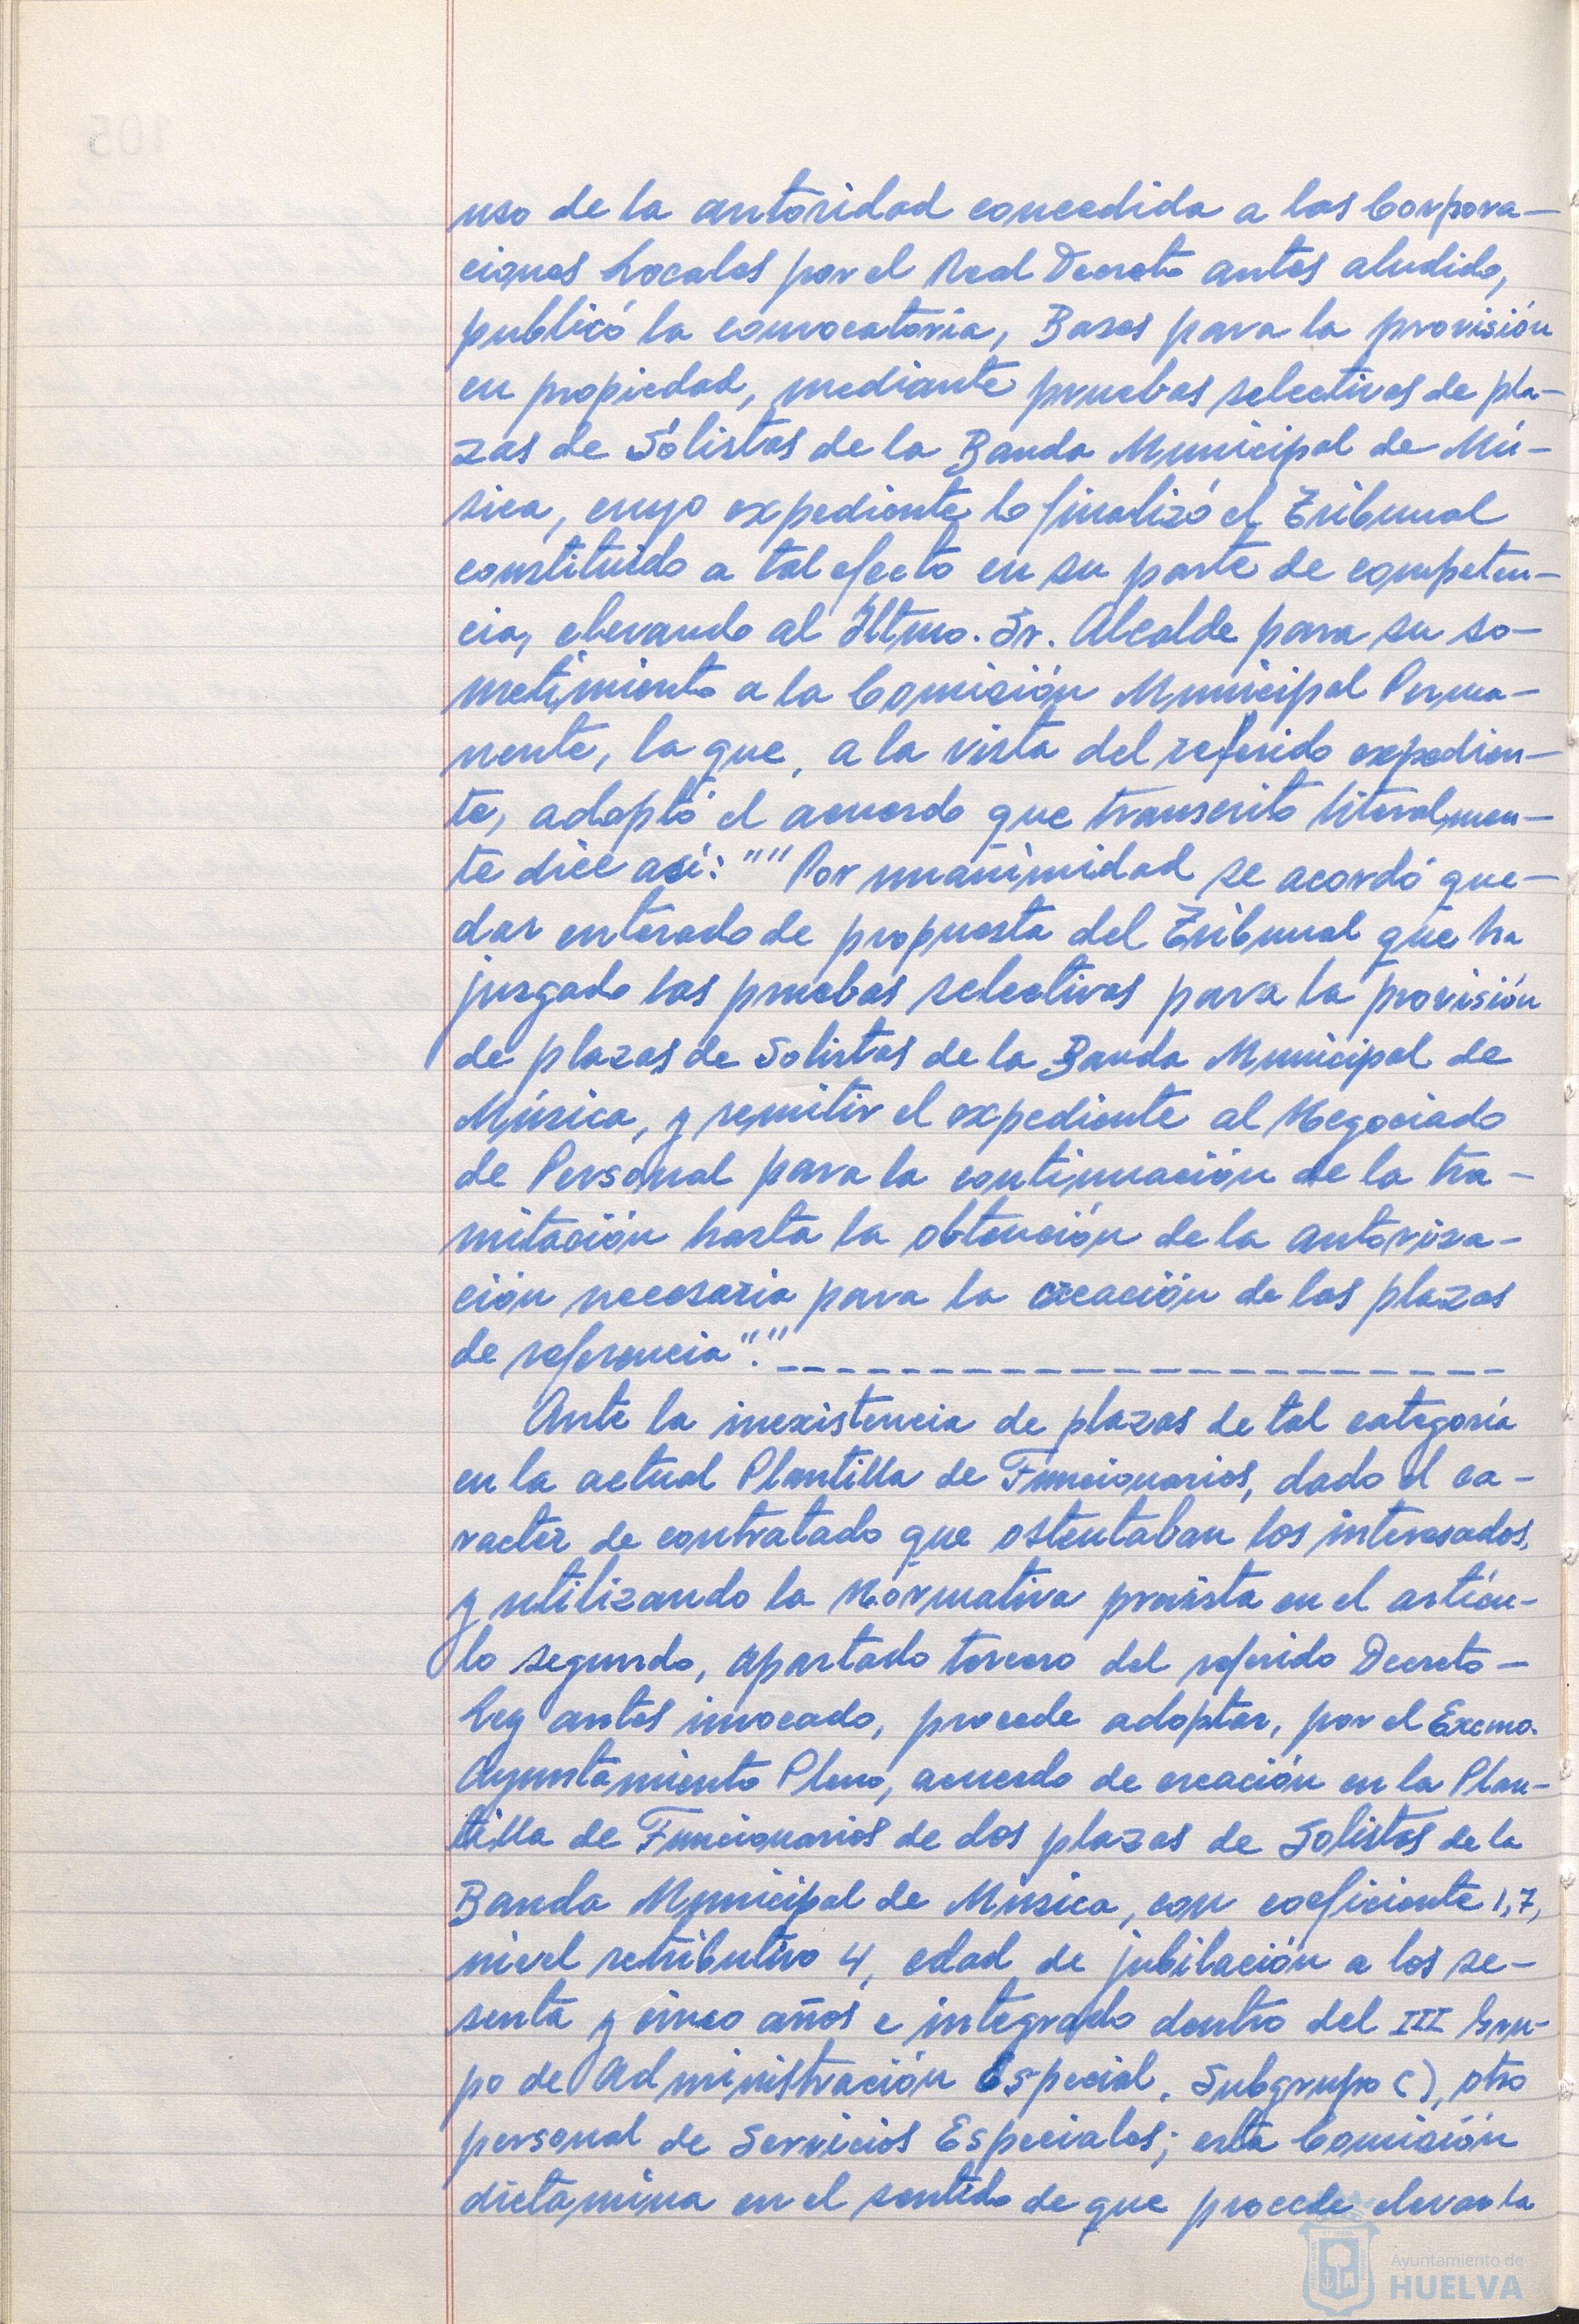 uso de la autoridad concedida a las Corpora-
ciones Locales por el Real Decreto antes aludido,
publicó la convocatoria, Bases para la provisión
en propiedad, mediante pruebas selectivas de pla-
zas de Sólistas de la Banda Municipal de Mú-
sica, cuyo expediente lo finalizó el Tribunal
constituido a tal efecto en su parte de competen-
cia, elevando al Iltmo. Sr. Alcalde para su so-
metimiento a la Comisión Municipal Perma-
nente, la que, a la vista del referido expedien-
te, adoptó el acuerdo que transcrito literalmen-
te dice así: "" Por unanimidad se acordó que-
dar enterado de propuesta del Tribunal que ha
juzgado las pruebas selectivas para la provisión
de plazas de Solistas de la Banda Municipal de
Música, y remitir el expediente al Negociado
de Personal para la continuación de la tra-
mitación hasta la obtención de la autoriza-
ción necesaria para la creación de las plazas
de referencia"."
Ante la inexistencia de plazas de tal categoría
en la actual Plantilla de Funcionarios, dado el ca-
racter de contratado que ostentaban los interesados,
y utilizando la Normativa prevista en el artícu-
lo segundo, apartado tercero del referido Decreto-
Ley antes invocado, procede adoptar, por el Excmo.
Ayuntamiento Pleno, acuerdo de creación en la Plan-
tilla de Funcionarios de dos plazas de Solistas de la
Banda Municipal de Música, con coeficiente 1,7,
nivel retributivo 4, edad de jubilación a los se-
senta y cinco años e integrado dentro del III Gru-
po de Administración Especial, Subgrupo C), otro
personal de Servicios Especiales; esta Comisión
dictamina en el sentido de que procede elevar la
Ayuntamiento de
HUELVA
105